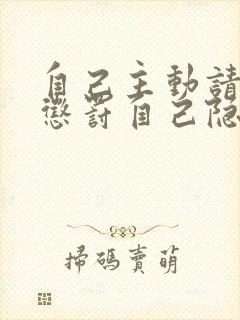 自己主動請
懲罰自己隐
掃碼賣萌